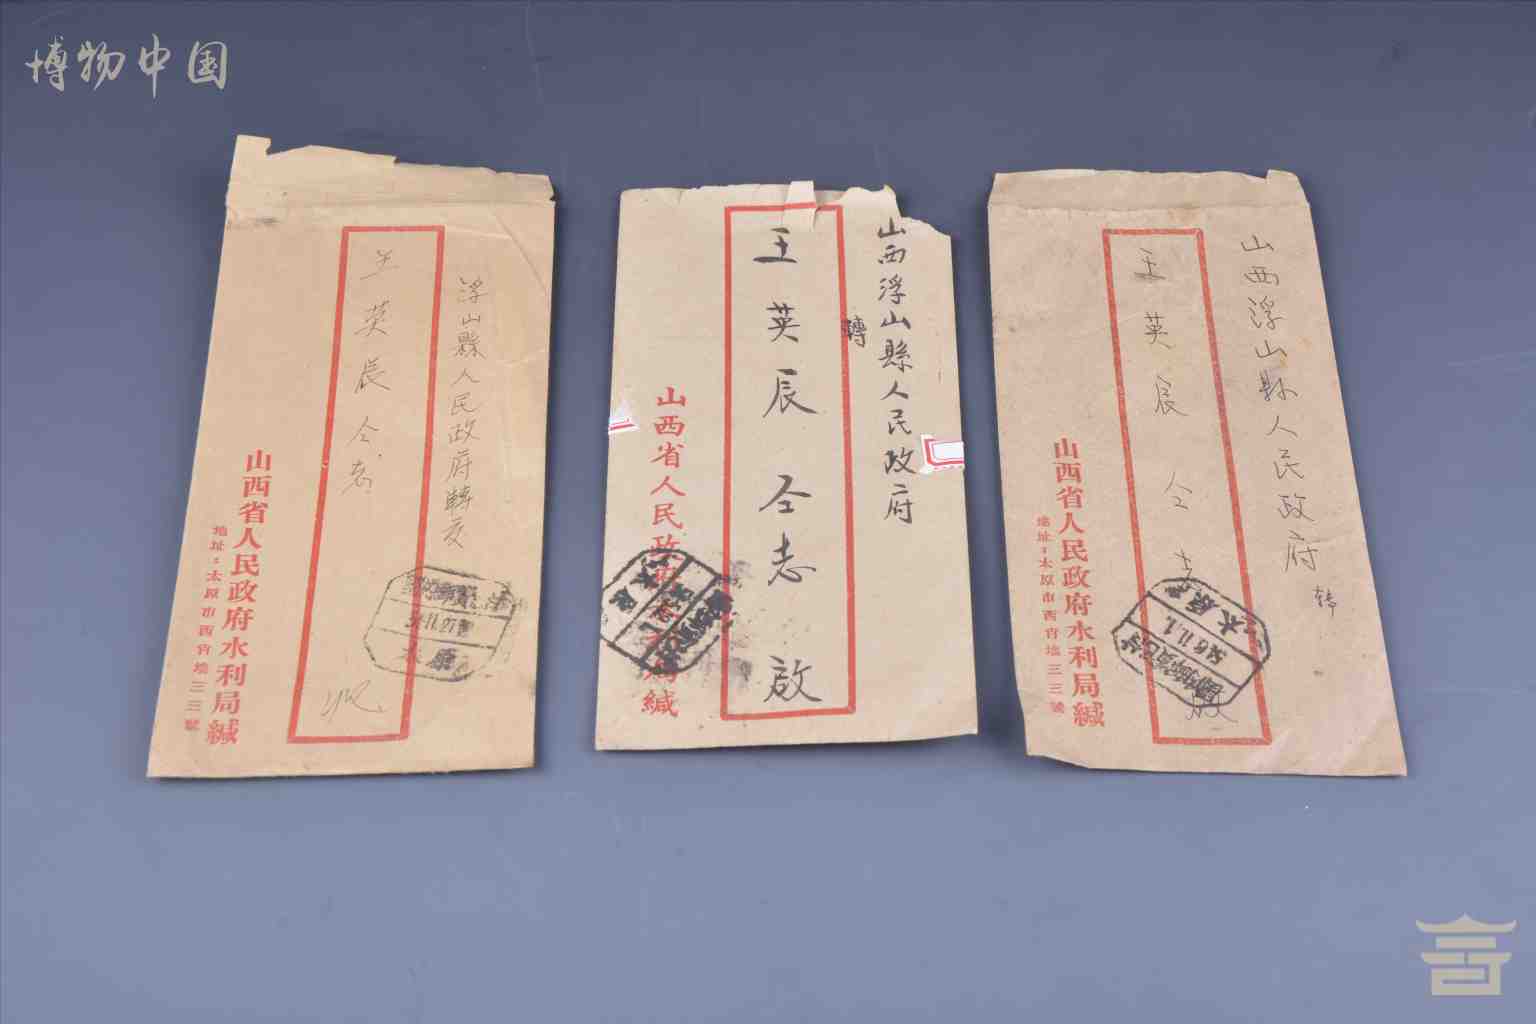 博物中国
浮山縣人民政府轉交
王英辰仝志
收
山西省人民政府水利局緘
地址：太原市西肖墙三三號
山西浮山縣人民政府
轉
王英辰仝志啟
山西省人民政府水利局緘
山西浮山縣人民政府
转
王英辰仝志
啟
山西省人民政府水利局緘
地址：太原市西肖墙三三號